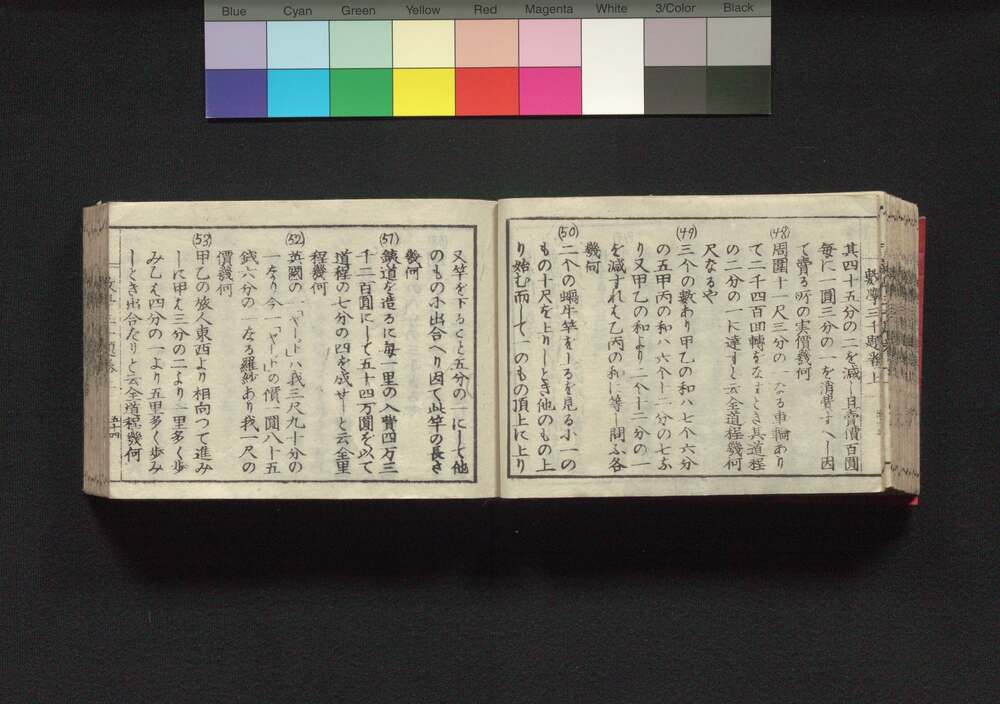 Blue Cyan Green Yellow Red Magenta White 3/Color Black
數學三千題卷上
其四十五分の二を減し且賣價百圓
毎に一圓三分の一を消費すへし因
て賣る所の実價幾何
(48)
周圍十一尺三分の なる車輪あり
て二千四百回轉をなすとき其道程
の二分の一に達すと云全道程幾何
尺なるや
(49)
三个の數あり甲乙の和ハ七个六分
の五甲丙の和ハ六个十二分の七ふ
り又甲乙の和より二个十二分の一
を減すれは乙丙の和に等 問ふ各
幾何
(50)
二个の蝸牛竿をーるを見る小一の
もの十尺を上りしとき他のもの上
り始む而して一のもの頂上に上り
又竿を下ること五分の一にして他
のもの小出合へり因て此竿の長さ
幾何
(51)
鐵道を造るに毎一里の入費四万三
千二百圓にして五十四万圓を以て
道程の七分の四を成せしと云全里
程幾何
(52)
英國の一「ヤールド」ハ我三尺九十分の
一なり今一「ヤールド」の價一圓八十五
錢六分の一なる羅紗あり我一尺の
價幾何
(53)
甲乙の旅人東西より相向つて進み
しに甲は三分の二より一里多く歩
み乙は四分の一より五里多く歩み
しとき出合たりと云全道程幾何
五十四